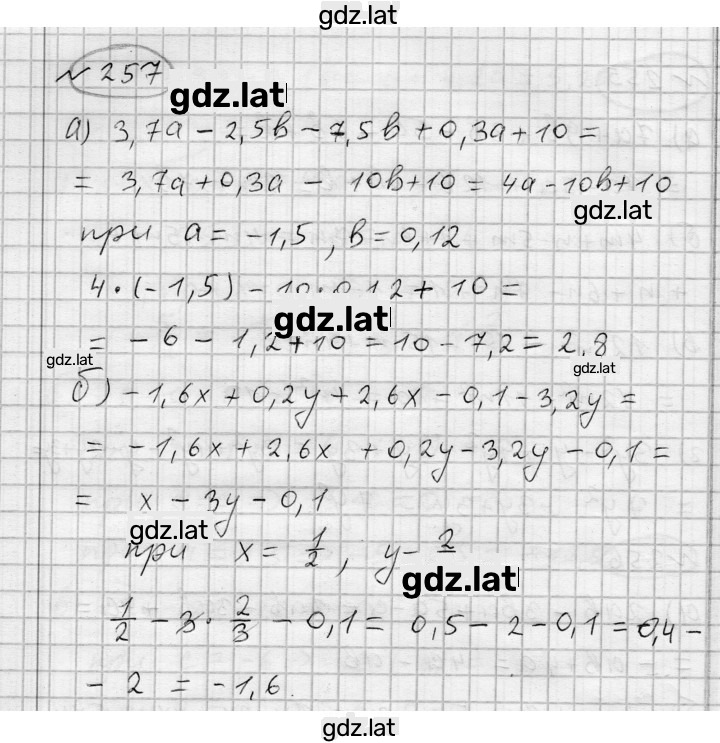 gdz.lat
№ 257
gdz.lat
а) 3,7a - 2,5b - 7,5b + 0,3a + 10 =
= 3,7a + 0,3a - 10b + 10 = 4a - 10b + 10
gdz.lat
при a = -1,5, b = 0,12
4 · (-1,5) - 10 · 0,12 + 10 =
gdz.lat
= -6 - 1,2 + 10 = 10 - 7,2 = 2,8
gdz.lat
gdz.lat
б) -1,6x + 0,2y + 2,6x - 0,1 - 3,2y =
= -1,6x + 2,6x + 0,2y - 3,2y - 0,1 =
= x - 3y - 0,1
gdz.lat
при x = 1/2, y - 2
gdz.lat
1/2 - 3 · 2/3 - 0,1 = 0,5 - 2 - 0,1 = 0,4 -
- 2 = -1,6.
gdz.lat